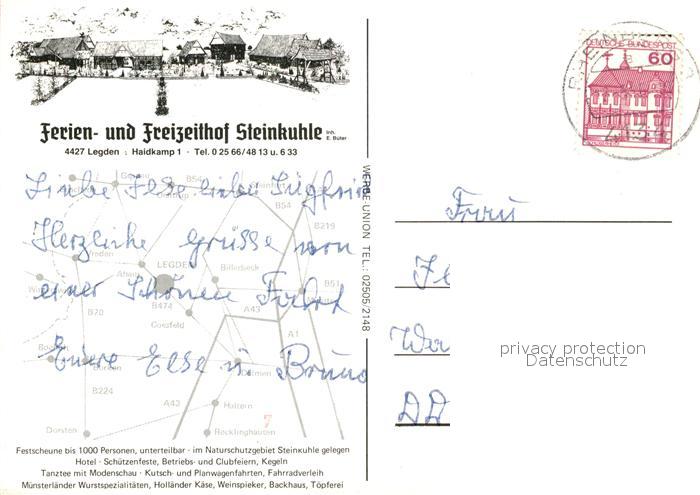 Ferien- und Freizeithof Steinkuhle Inh. E. Büter
4427 Legden : Haidkamp 1 · Tel. 0 25 66/48 13 u. 6 33
Liebe Ilse lieber Siegfried
Herzliche Grüsse von
einer Schönen Fahrt
Eure Else u Bruno
Gronau
B54
B54
B219
Vreden
Ahaus
LEGDEN
Billerbeck
B51
B70
B474
Coesfeld
A43
A1
Borken
Dülmen
B224
A43
Haltern
7
Dorsten
Recklinghausen
Festscheune bis 1000 Personen, unterteilbar · im Naturschutzgebiet Steinkuhle gelegen
Hotel · Schützenfeste, Betriebs- und Clubfeiern, Kegeln
Tanztee mit Modenschau · Kutsch- und Planwagenfahrten, Fahrradverleih
Münsterländer Wurstspezialitäten, Holländer Käse, Weinspieker, Backhaus, Töpferei
WERBE-UNION TEL.: 02505/2148
DEUTSCHE BUNDESPOST
60
Frau
privacy protection
Datenschutz